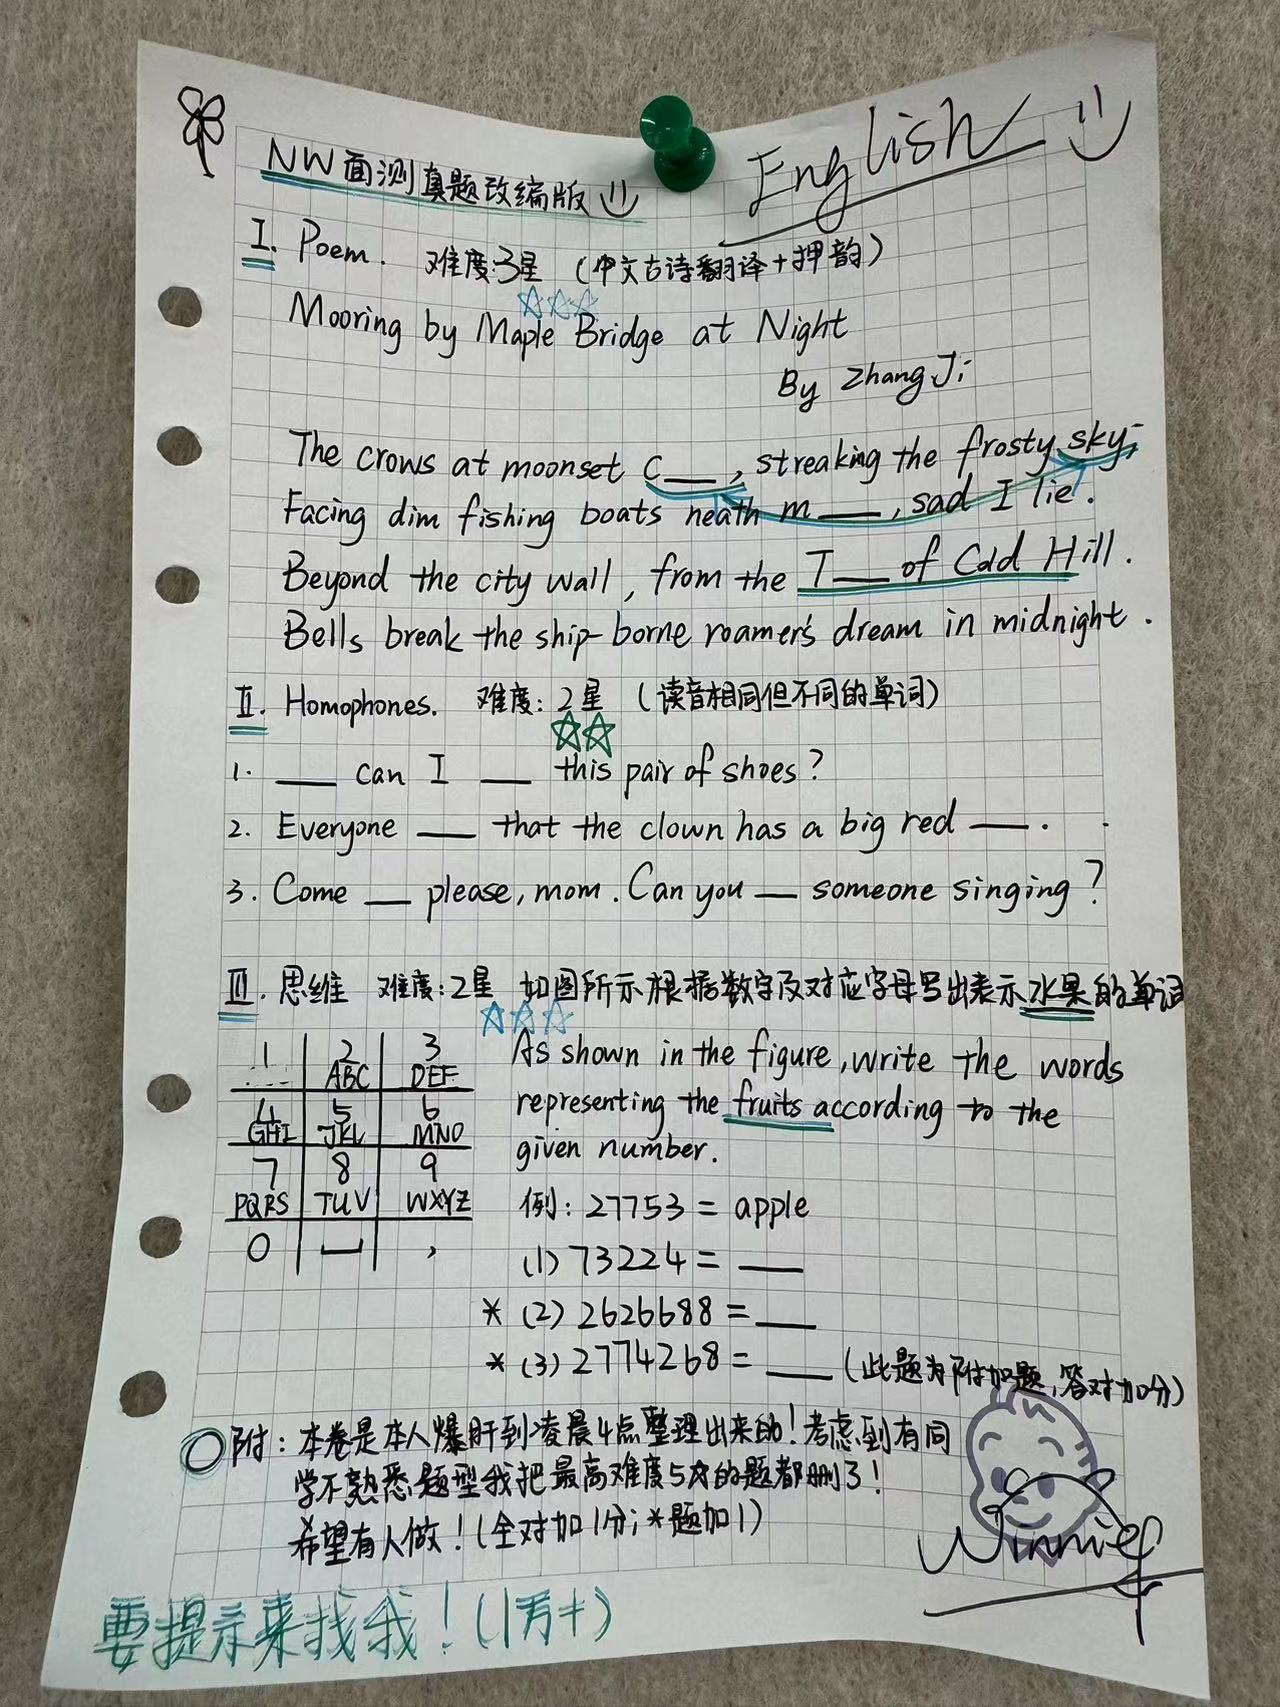 English
NW面测真题改编版
I. Poem. 难度:3星 (中文古诗翻译+押韵)
Mooring by Maple Bridge at Night
By Zhang Ji
The crows at moonset c___, streaking the frosty sky;
Facing dim fishing boats neath m___, sad I lie.
Beyond the city wall, from the T___ of Cold Hill.
Bells break the ship-borne roamer's dream in midnight.
II. Homophones. 难度: 2星 (读音相同但不同的单词)
1. ___ can I ___ this pair of shoes?
2. Everyone ___ that the clown has a big red ___.
3. Come ___ please, mom. Can you ___ someone singing?
III. 思维 难度:2星 如图所示根据数字及对应字母写出表示水果的单词
1 2 3
ABC DEF
4 5 6
GHI JKL MNO
7 8 9
PQRS TUV WXYZ
0 ,
As shown in the figure, write the words
representing the fruits according to the
given number.
例: 27753 = apple
(1) 73224 = ___
* (2) 2626688 = ___
* (3) 2774268 = ___ (此题为附加题,答对加分)
附: 本卷是本人爆肝到凌晨4点整理出来的!考虑到有同
学不熟悉题型我把最高难度5大的题都删了!
希望有人做!(全对加1分;*题加1)
Winnie
要提示来找我!(1万+)